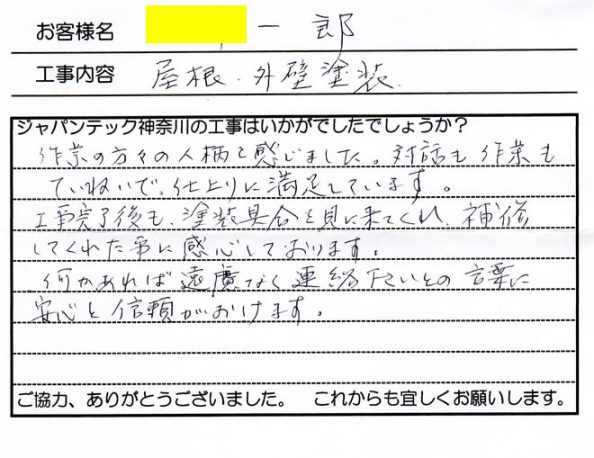 お客様名 一郎
工事内容 屋根・外壁塗装.
ジャパンテック神奈川の工事はいかがでしたでしょうか？
作業の方々の人柄を感じました。対話も作業も
ていねいで、仕上りに満足しています。
工事完了後も、塗装具合を見に来てくれ、補修
してくれた事に感心しております。
何かあれば遠慮なく連絡下さいとの言葉に
安心と信頼がおけます。
ご協力、ありがとうございました。 これからも宜しくお願いします。